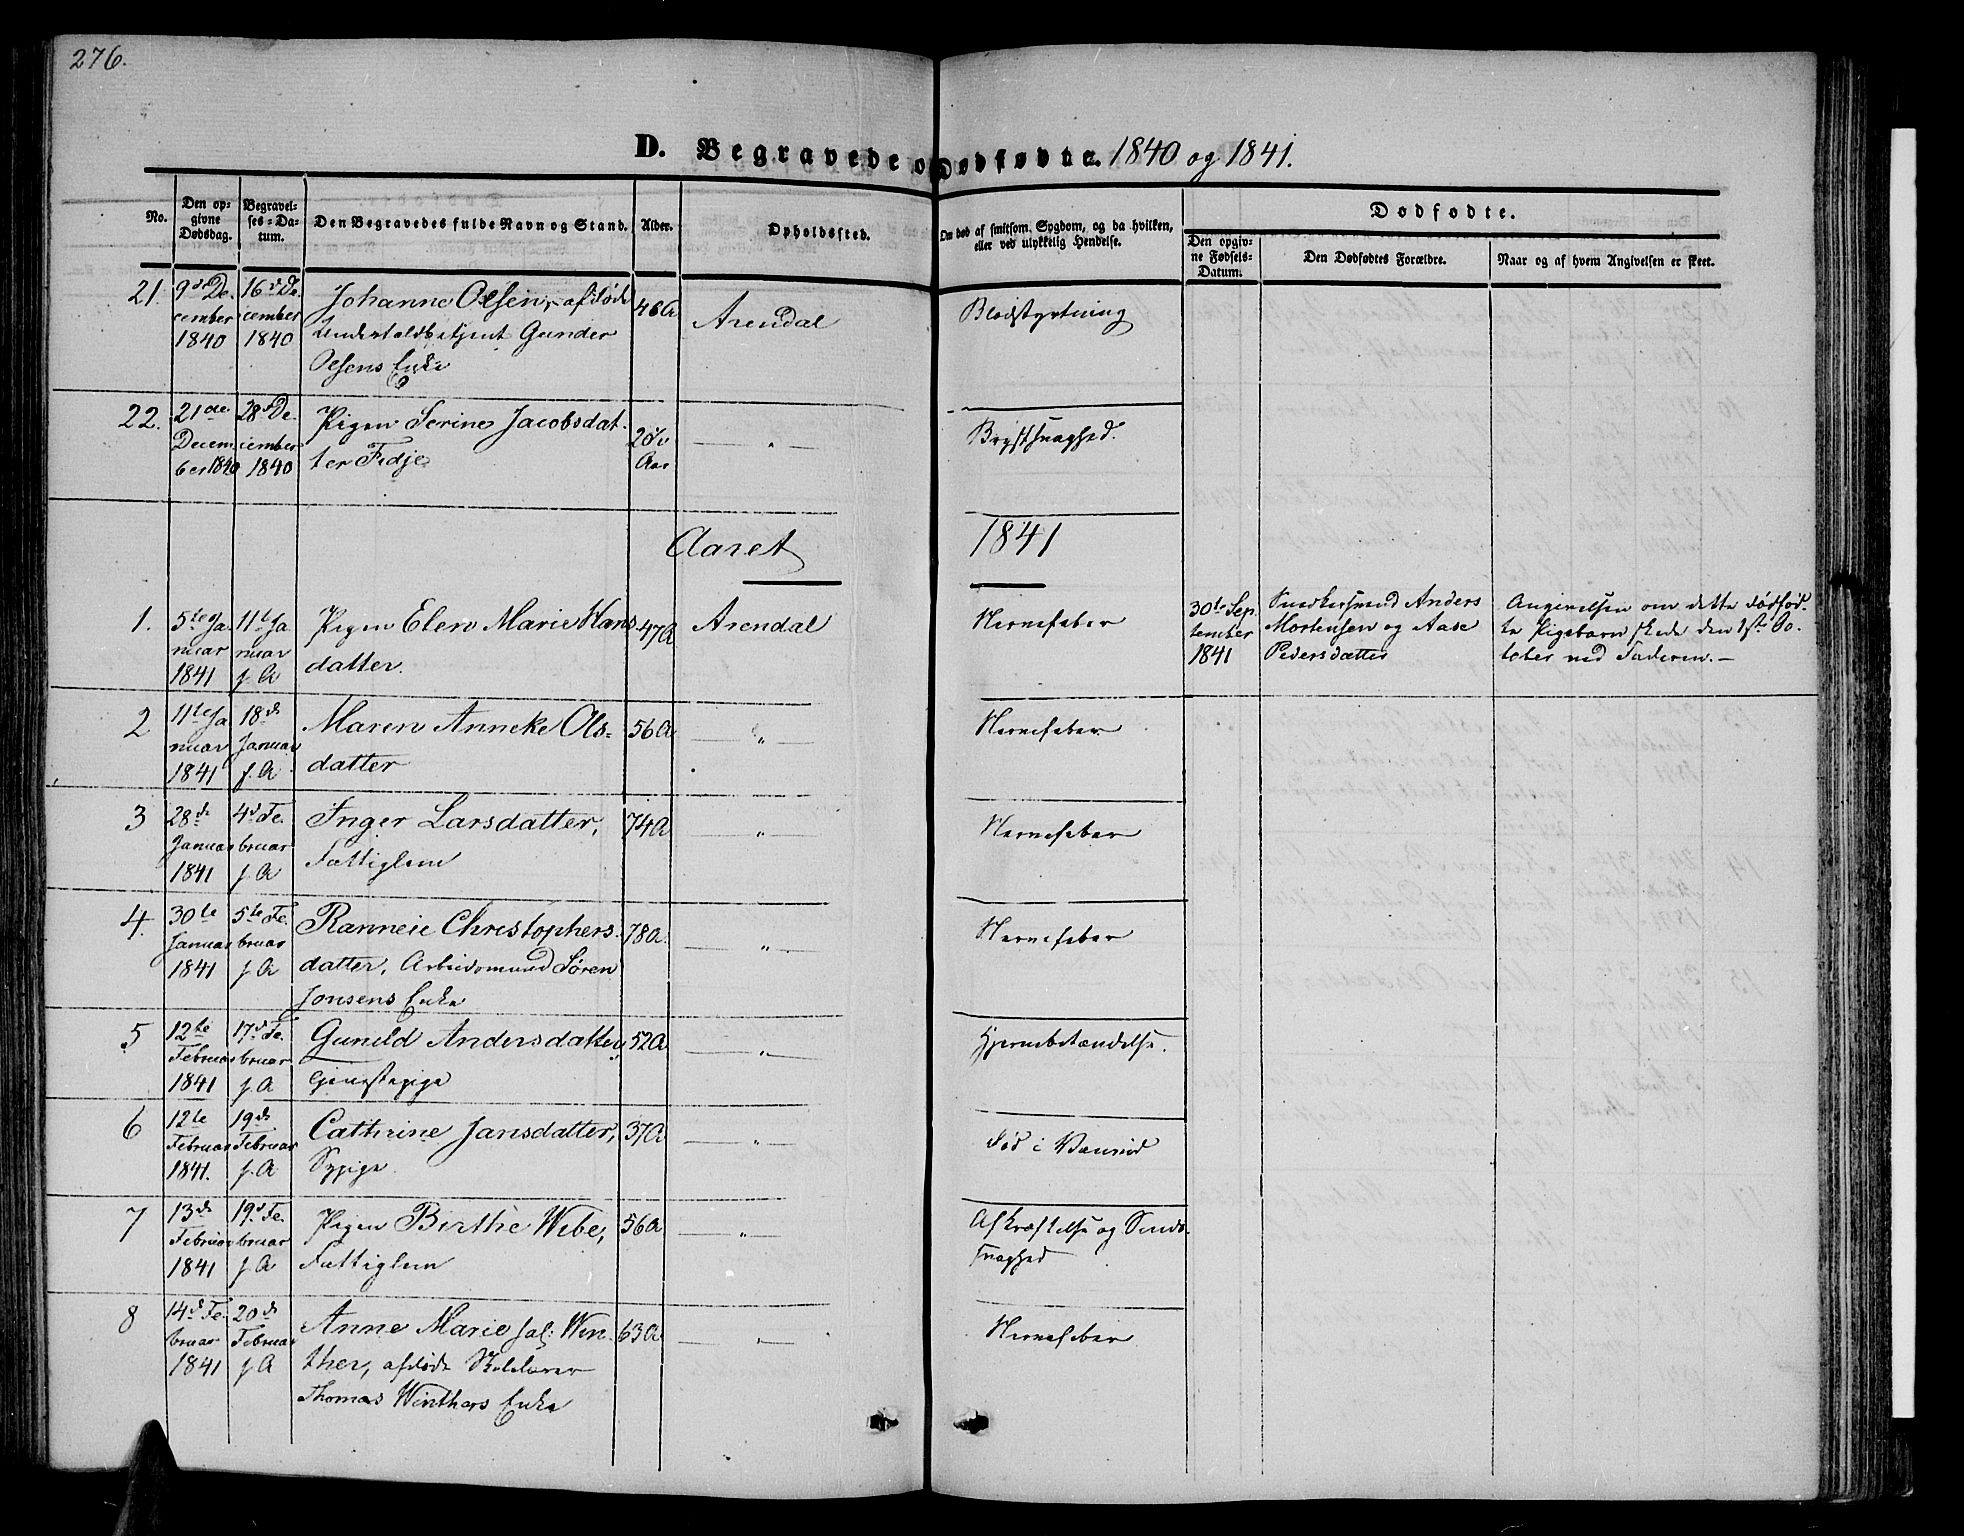 276.
D. Begravede o Dødfødte. 1840 og 1841.
No.
Den op-
givne
Dødsdag.
Begravel-
ses-Da-
tum.
Den Begravedes fulde Navn og Stand.
Alder.
Opholdssted.
Om død af smitsom. Sygdom, og da hvilken,
eller ved ulykkelig Hendelse.
Dødfødte.
Den opgiv-
ne Fødsels-
Datum.
Den Dødfødtes Forældre.
Naar og af hvem Angivelsen er skeet.
21.
9de De-
cember
1840
16de De-
cember
1840
Johanne Olsen, afdøde
Undertoldbetjent Gunder
Olsens Enke
46 A
Arendal
Blodstyrtning
22.
21de
Decem
ber 1840
28de De-
cember
1840
Pigen Serine Jacobsdat-
ter Fedje
Aar
— " —
Brystsvaghed.
Aaret 1841
1.
5te Ja
nuar
1841
11te Ja
nuar
f. A
Pigen Elen Marie Hans
datter.
47 A
Arendal
Nervefeber
30te Sep
tember
1841
Snedkersvend Anders
Mortensen og Aase
Pedersdatter
Angivelsen om dette dødfød-
te Pigebarn skede den 1ste Oc-
tober ved Faderen. —
2
11te Ja
nuar
1841
18de
Januar
f. A
Maren Anneke Ols-
datter
56 A
— " —
Nervefeber
3
28de
Januar
1841
4de Fe-
bruar
f. A
Inger Larsdatter,
Fattiglem
74 A
— " —
Nervefeber
4.
30te
Januar
1841
5te Fe-
bruar
f. A
Ranneie Christophers-
datter, Arbeidsmand Søren
Jonsens Enke
78 A.
— " —
Nervefeber
5
12te
Februar
1841
17de Fe-
bruar
f. A
Guneld Andersdatter,
Tjenestepige
52 A
— " —
Hjernebetændelse.
6
12te
Februar
1841.
19de
Februar
f. A
Cathrine Jansdatter,
Sypige
37 A
— " —
Død i Vanvid
7
13de
Februar
1841
19de Fe-
bruar
f. A
Pigen Birthe Wibe,
Fattiglem
56 A
— " —
Afkræftelse og Sinds-
svaghed
8
14de Fe-
bruar
1841
20de
Februar
f. A
Anne Marie sal: Win-
ther, afdøde
Thomas Winthers Enke
63 A
— " —
Nervefeber